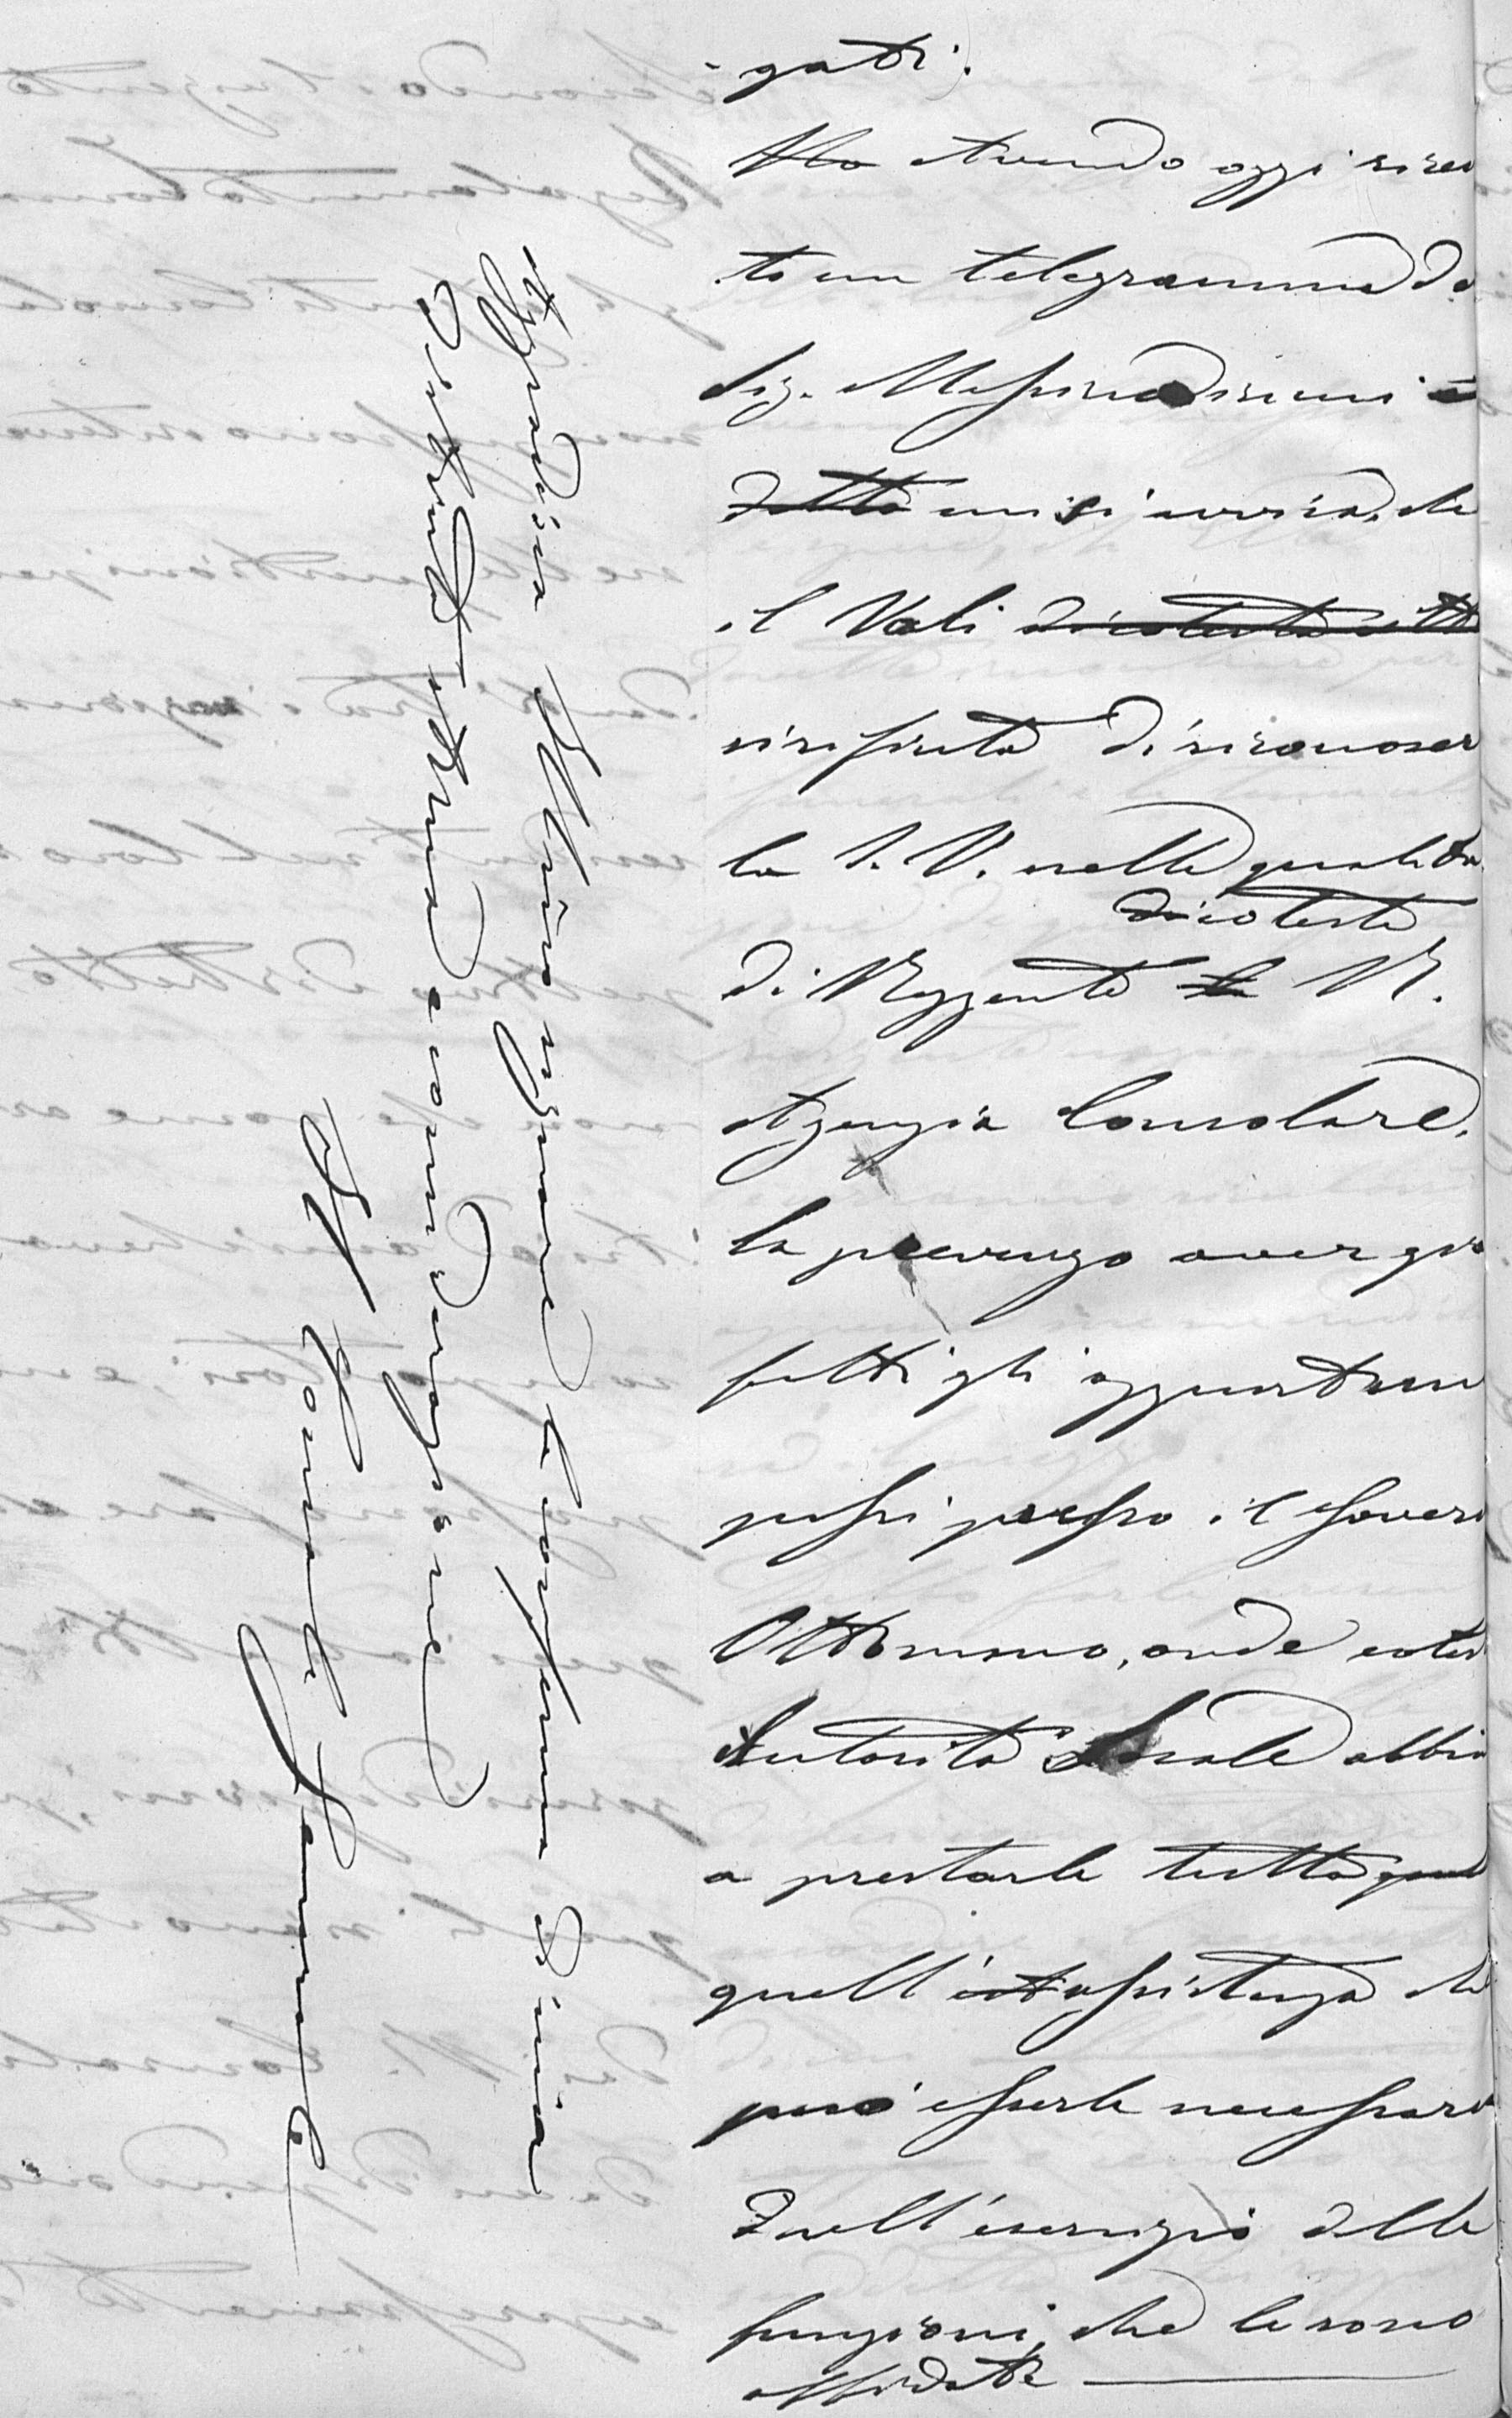 -gati.
Ma Avendo oggi ricevu
to un telegramma da
Sig. in
detta mi si avvisa, che
il Vali di cotesta città
si rifiuta di riconoscer
la S. V. nella qualità
di cotesta
di Reggente la R.
Agenzia Consolare.
La prevengo aver già
fatti gli opportuni
passi presso il Govern
Ottomano, onde cotest
Autorità Locale abbia
a prestarle tutta quel
quell'assistenza che
può esserle necessaria
nell'esercizio delle
funzioni, che le sono
affidate
Aggradisca Illmo Signore la conferma della mia
distinta stima e considerazione
Il R. Console Generale